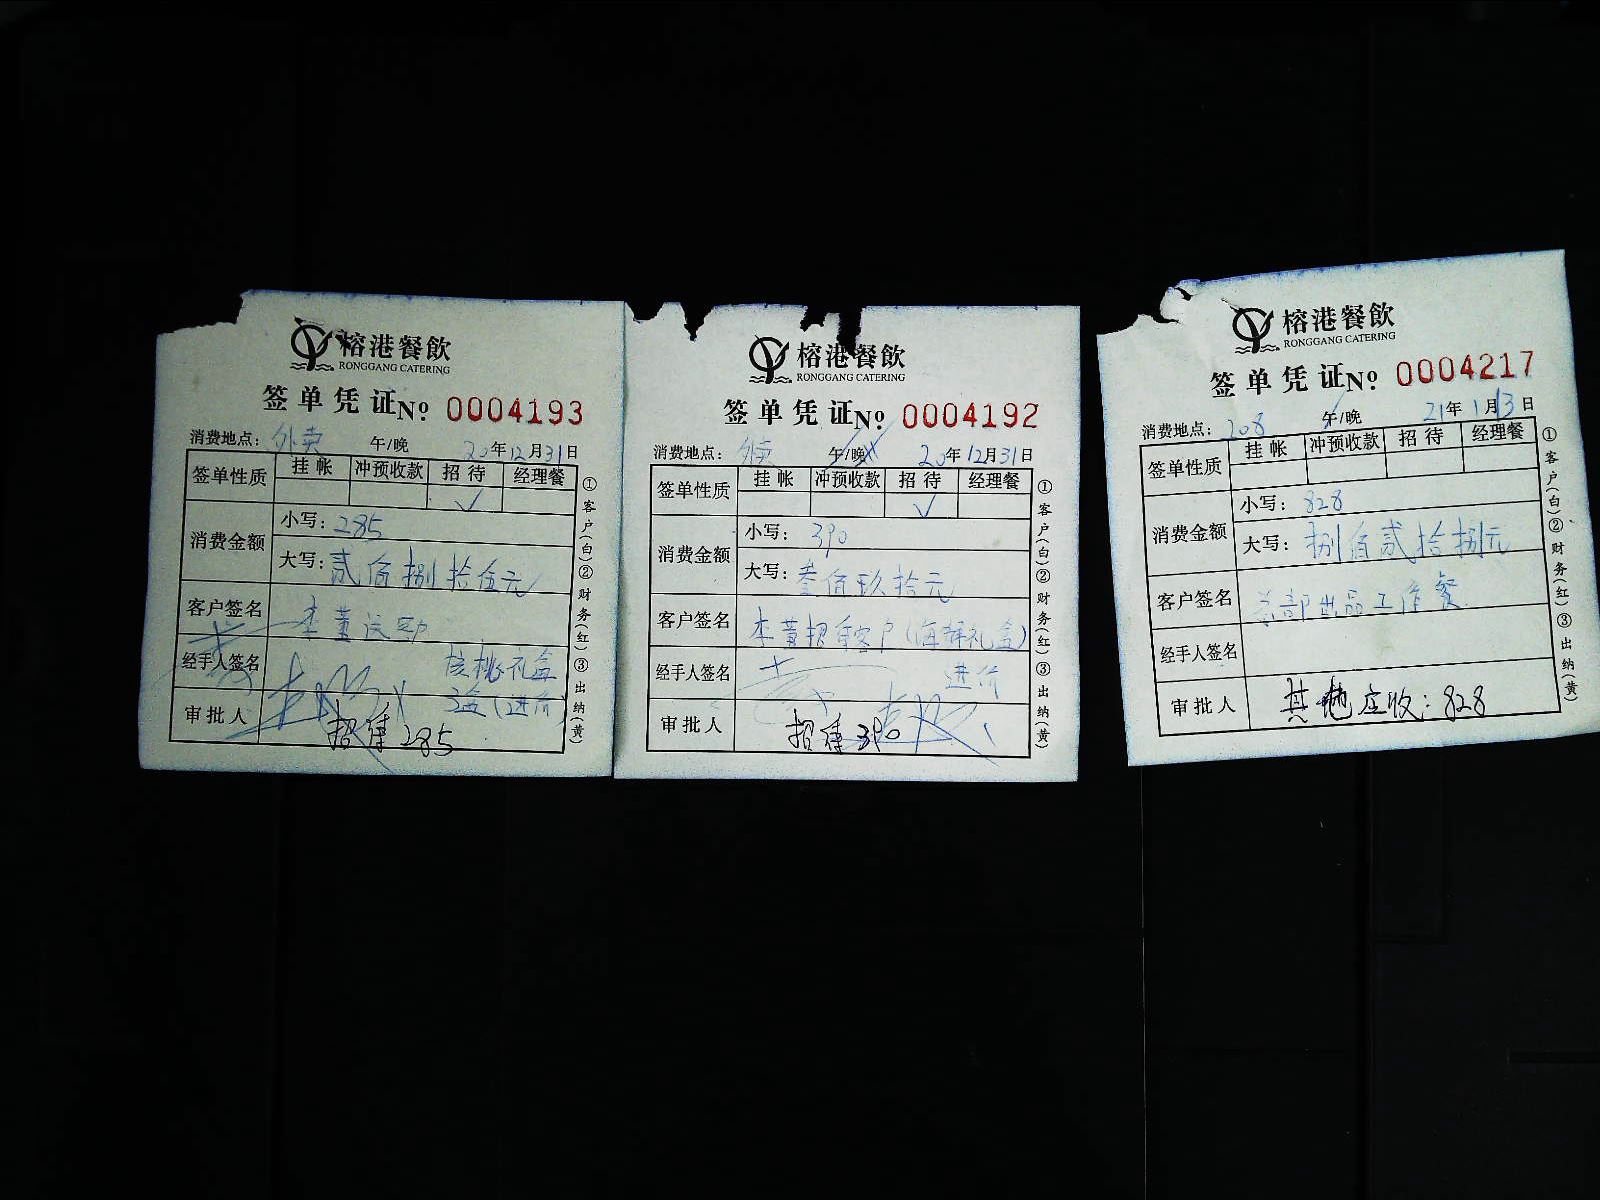 榕港餐飲
RONGGANG CATERING
签单凭证 No: 0004193
消费地点: 外卖 午/晚 20年12月31日
签单性质 挂帐 冲预收款 招待 经理餐
√
消费金额 小写: 285
大写: 贰佰捌拾伍元
客户签名 李董
经手人签名 核桃礼盒
3盒(进价)
审批人 招待285
①客户(白)②财务(红)③出纳(黄)
榕港餐飲
RONGGANG CATERING
签单凭证 No: 0004192
消费地点: 外卖 午/晚 20年12月31日
签单性质 挂帐 冲预收款 招待 经理餐
√
消费金额 小写: 390
大写: 叁佰玖拾元
客户签名 李董招待客户(海鲜礼盒)
经手人签名 进价
审批人 招待390
①客户(白)②财务(红)③出纳(黄)
榕港餐飲
RONGGANG CATERING
签单凭证 No: 0004217
消费地点: 208 午/晚 21年1月13日
签单性质 挂帐 冲预收款 招待 经理餐
消费金额 小写: 828
大写: 捌佰贰拾捌元
客户签名 总部出品工作餐
经手人签名
审批人 其他应收: 828
①客户(白)②财务(红)③出纳(黄)